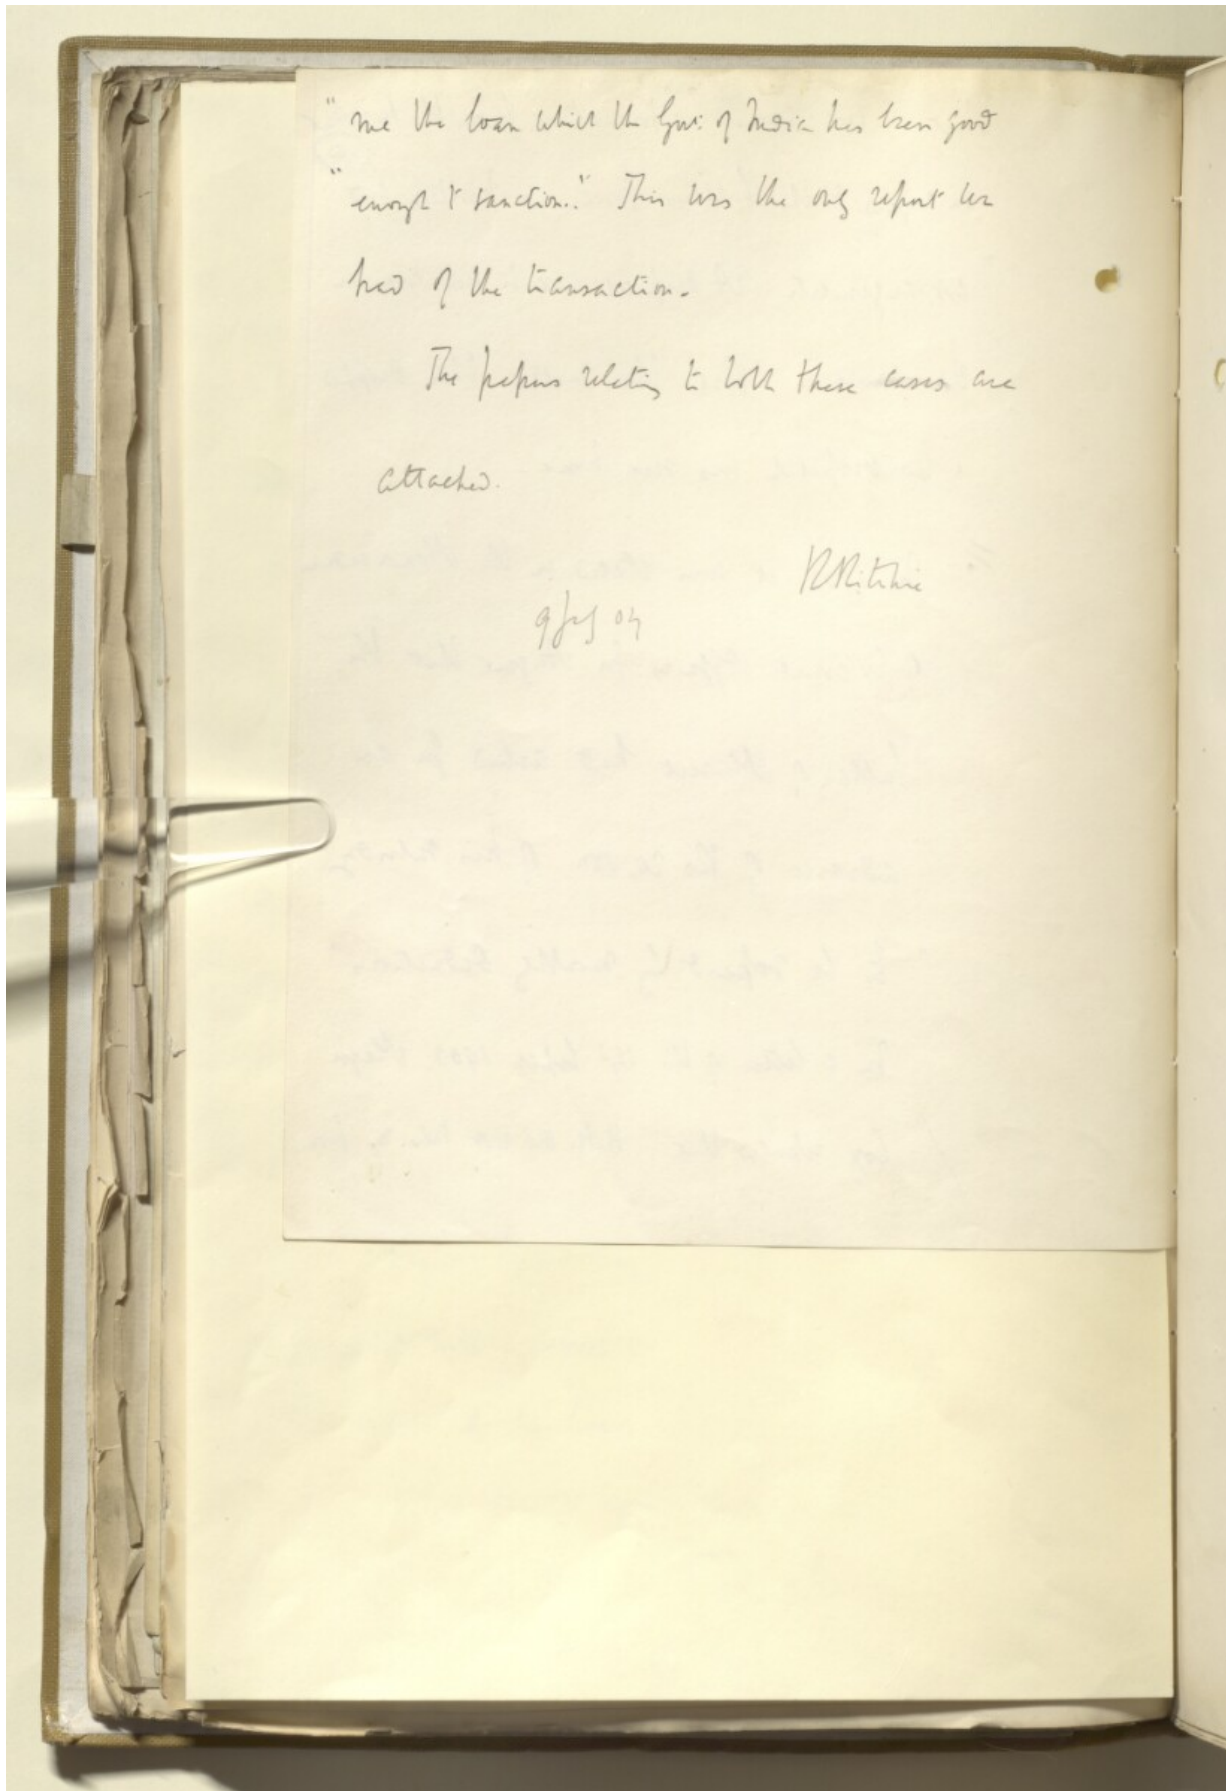 "me the loan which the Govt: of India has been good
"enough to sanction." This was the only report we
had of the transaction.
The papers relating to both these cases are
attached.
R Ritchie
04